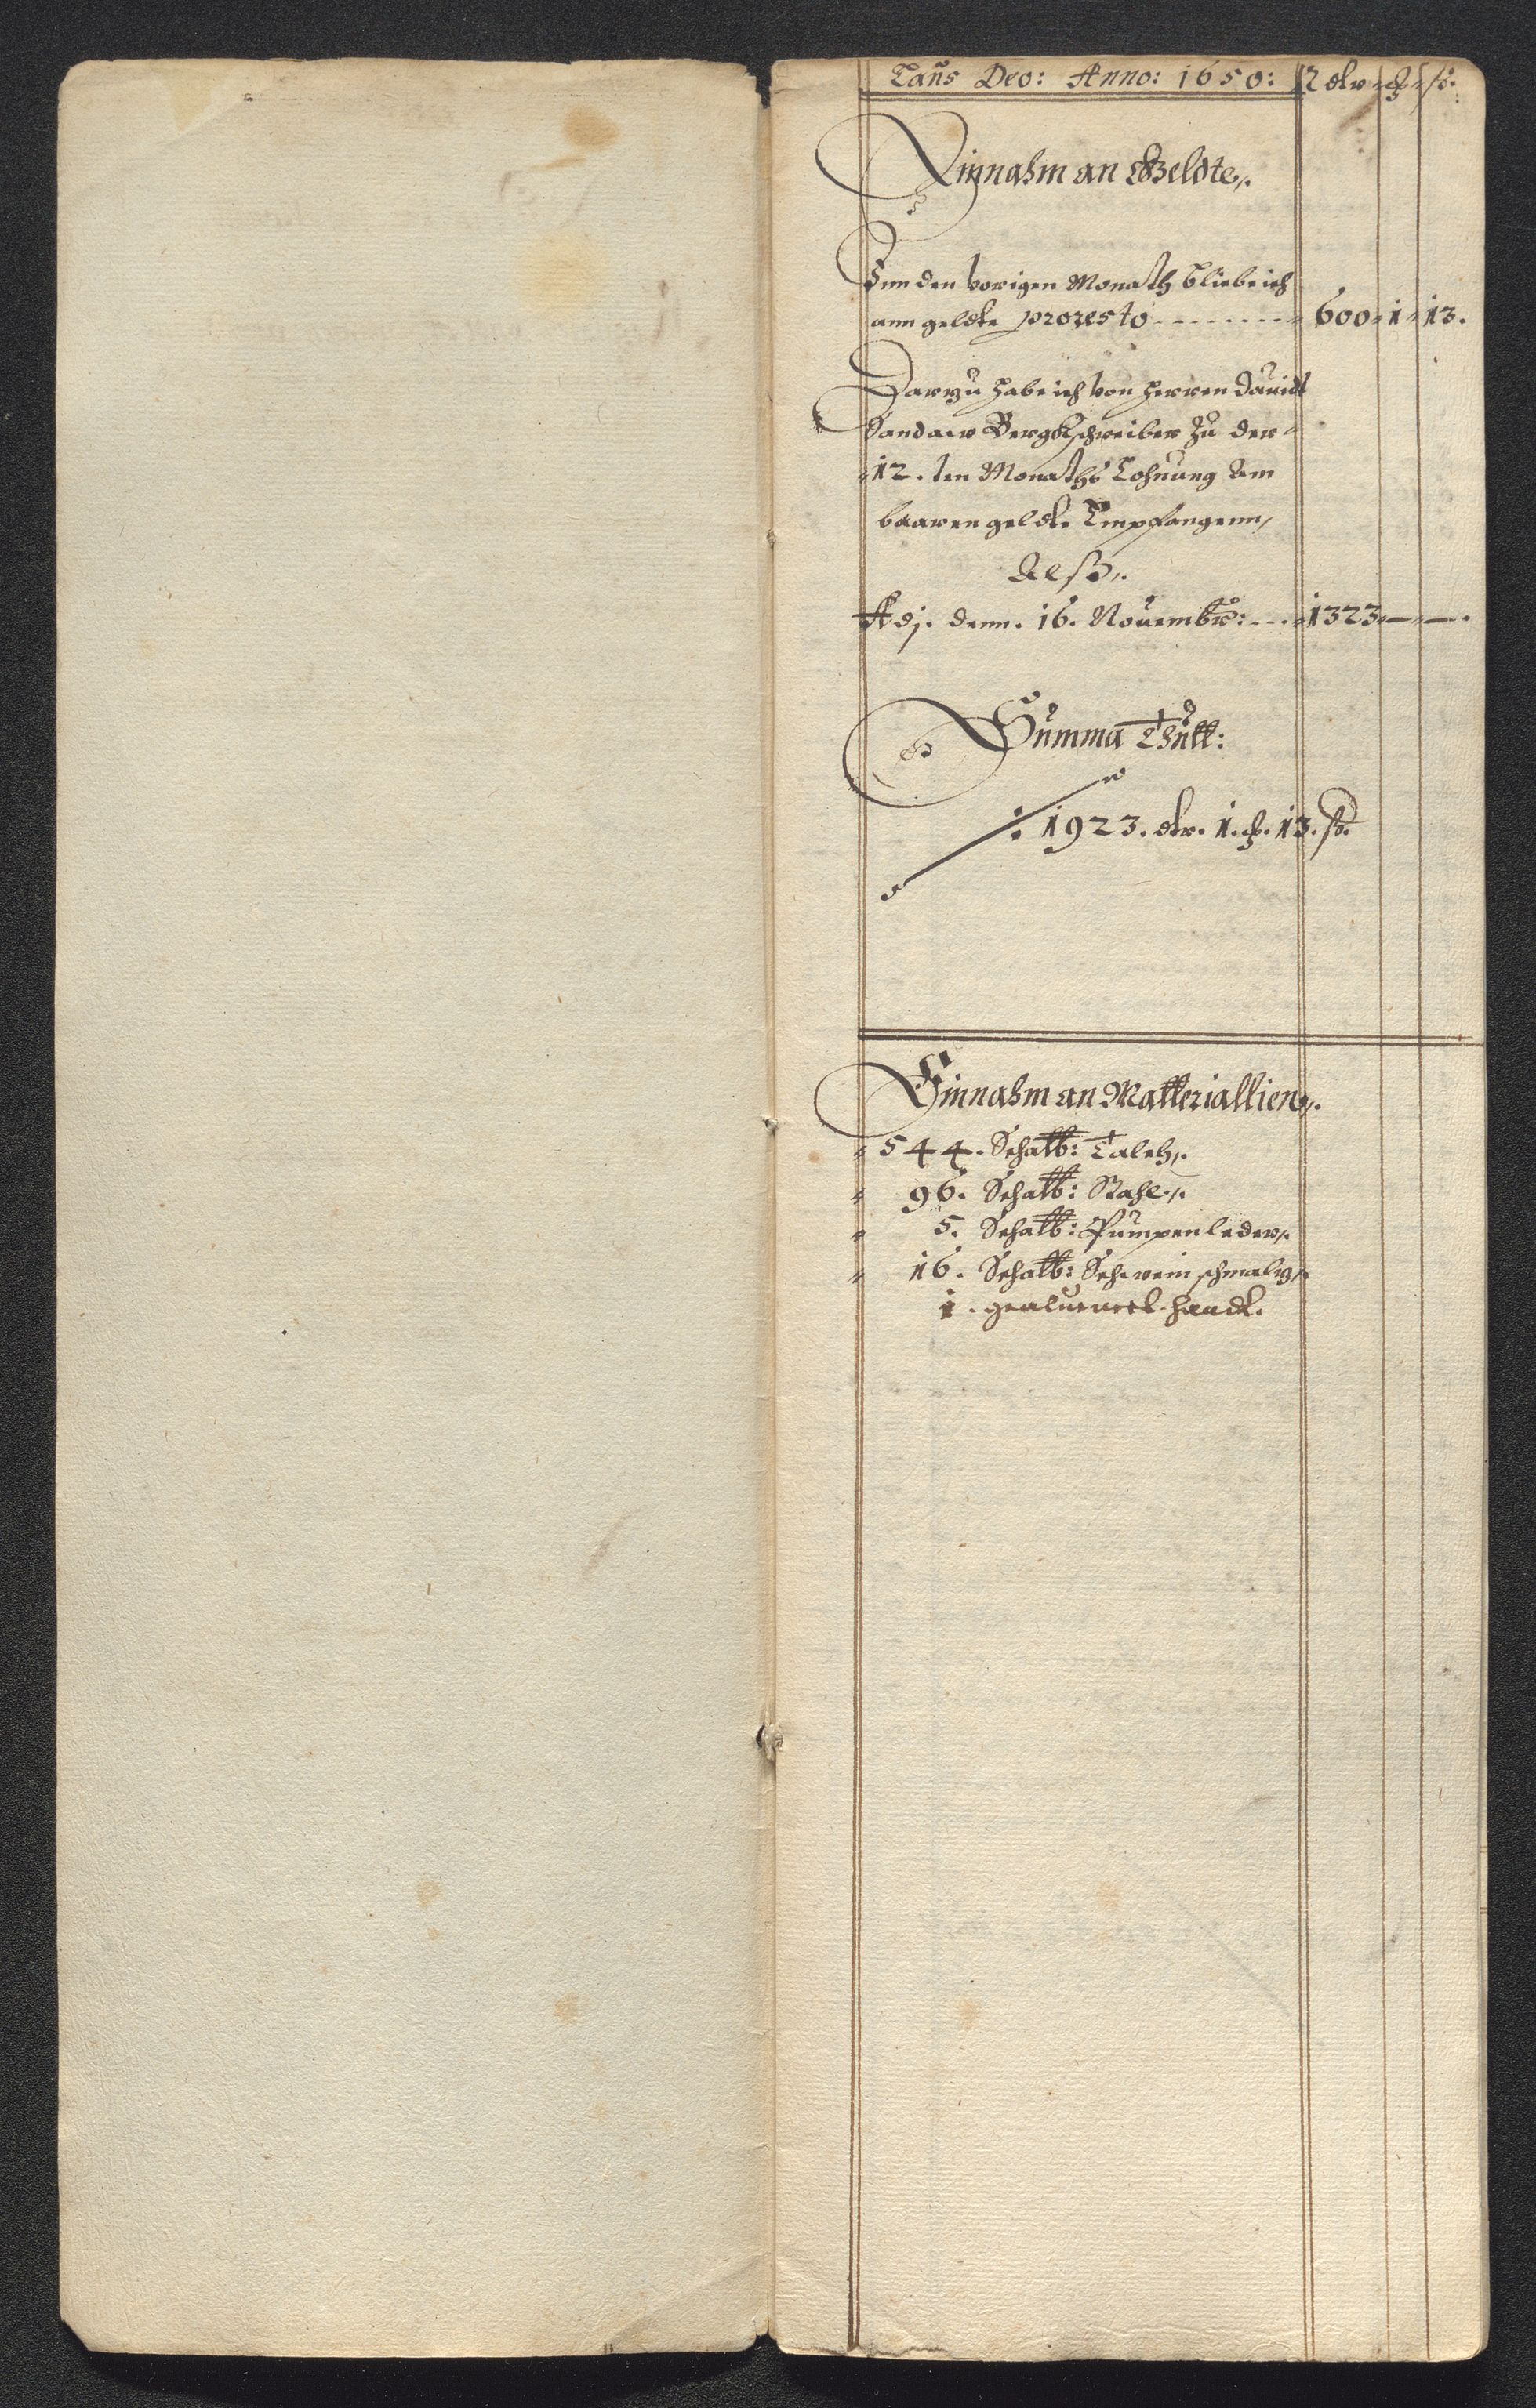 Laus Deo: Anno: 1650: R dlr ß
Einnahm an Geldte
Inn den vorigen Monath bliebe ich
ann geldte pro resto - - - - - - - - - 600 1 13.
Darzu habe ich von Herren Dauidt
Sandaer Bergkschreiber zu der
12. ten Monaths Lohnung Am
baaren geldte Empfangenn,
Alß
Adj. denn. 16. Nouembr: - - - 1323 — —.
Summa Thutt:
1923. dlr. 1. 13. ß
Einnahm an Matterialliens
544. Schalb: Talch
96. Schalb: Stahl
5. Schalb: Pumpenleder
16. Schalb: Schweinschmaltz
1. handt.